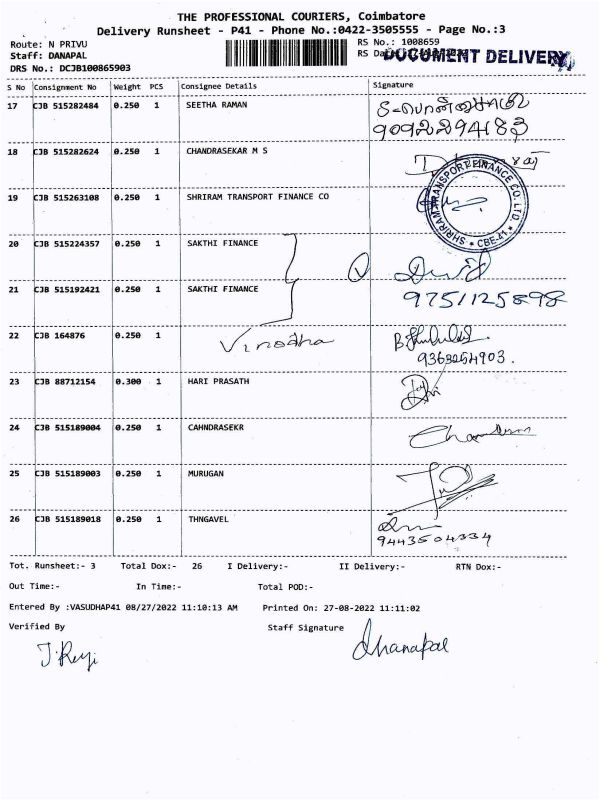 THE PROFESSIONAL COURIERS, Coimbatore
Delivery Runsheet - P41 - Phone No.:0422-3505555 - Page No.:3
Route: N PRIVU
RS No.: 1008659
Staff: DANAPAL
DOCUMENT DELIVERY
DRS No.: DCJB100865903
S No Consignment No Weight PCS Consignee Details Signature
17 CJB 515282484 0.250 1 SEETHA RAMAN
9092294183
18 CJB 515282624 0.250 1 CHANDRASEKAR M S
19 CJB 515263108 0.250 1 SHRIRAM TRANSPORT FINANCE CO
SHRIRAM TRANSPORT FINANCE CO. LTD. * CBE-41 *
20 CJB 515224357 0.250 1 SAKTHI FINANCE
21 CJB 515192421 0.250 1 SAKTHI FINANCE
9751125898
22 CJB 164876 0.250 1 Vinodha
9363254903.
23 CJB 88712154 0.300 1 HARI PRASATH
24 CJB 515189004 0.250 1 CAHNDRASEKR
25 CJB 515189003 0.250 1 MURUGAN
26 CJB 515189018 0.250 1 THNGAVEL
9443504334
Tot. Runsheet:- 3 Total Dox:- 26 I Delivery:- II Delivery:- RTN Dox:-
Out Time:- In Time:- Total POD:-
Entered By :VASUDHAP41 08/27/2022 11:10:13 AM Printed On: 27-08-2022 11:11:02
Verified By Staff Signature
Dhanapal